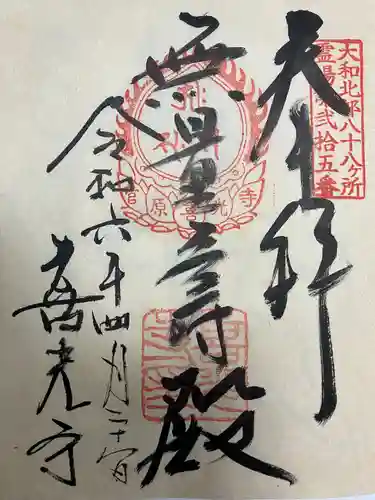 大和北部八十八ヶ所
霊場第弐拾五番
奉拝
無量寿殿
令和六年四月二十八日
喜光寺